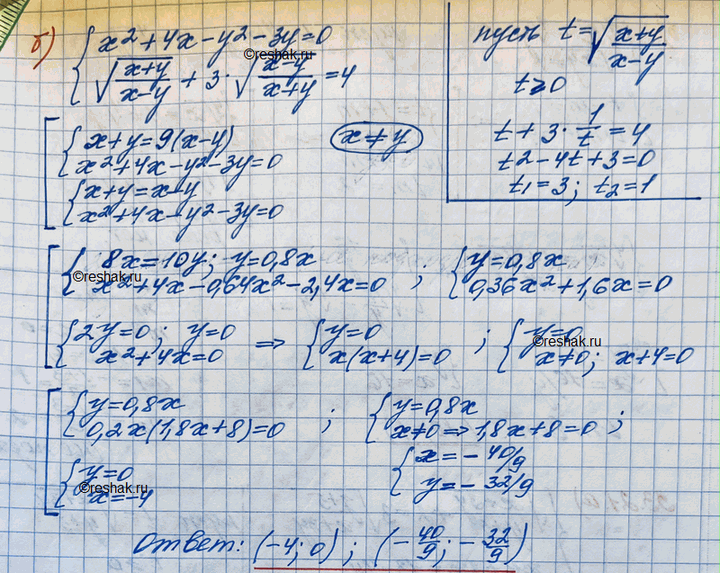 б) { x² + 4x - y² - 3y = 0
√((x+y)/(x-y)) + 3·√((x-y)/(x+y)) = 4
©reshak.ru
пусть t = √((x+y)/(x-y))
t ≥ 0
t + 3·1/t = 4
t² - 4t + 3 = 0
t₁ = 3; t₂ = 1
[ { x+y = 9(x-y)
x² + 4x - y² - 3y = 0
{ x+y = x-y
x² + 4x - y² - 3y = 0
x ≠ y
[ { 8x = 10y; y = 0,8x
x² + 4x - 0,64x² - 2,4x = 0 ; { y = 0,8x
0,36x² + 1,6x = 0
©reshak.ru
{ 2y = 0; y = 0
x² + 4x = 0 ⇒ { y = 0
x(x+4) = 0 ; { y = 0
x ≠ 0; x+4 = 0
©reshak.ru
[ { y = 0,8x
0,2x(1,8x+8) = 0 ; { y = 0,8x
x ≠ 0 ⇒ 1,8x+8 = 0 ;
{ x = -40/9
y = -32/9
{ y = 0
x = -4
©reshak.ru
Ответ: (-4; 0) ; (-40/9; -32/9)